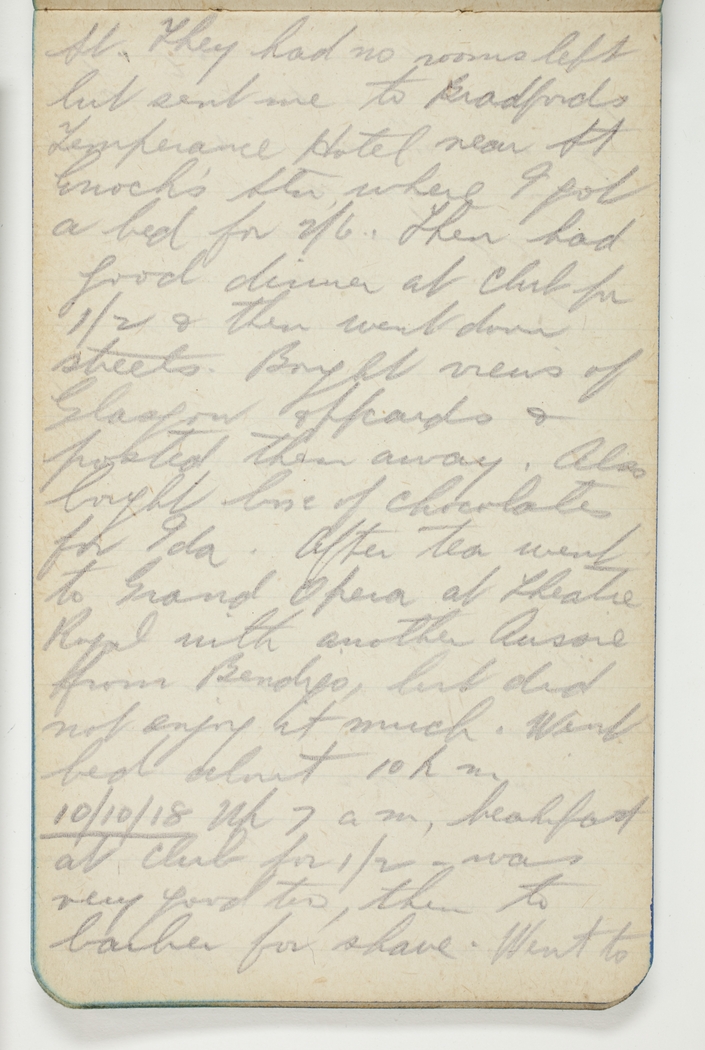 St. They had no rooms left
but sent me to Bradfords
Temperance Hotel near St
Enoch's Stn, where I got
a bed for 2/6. Then had
good dinner at Club for
1/2 & then went down
streets. Bought views of
Glasgow & ppcards &
posted them away. Also
bought box of chocolates
for Ida. After tea went
to Grand Opera at Theatre
Royal with another Aussie
from Bendigo, but did
not enjoy it much. Went
bed about 10 p m
10/10/18 Up 7 a m, breakfast
at Club for 1/2 - was
very good too, then to
barber for shave. Went to